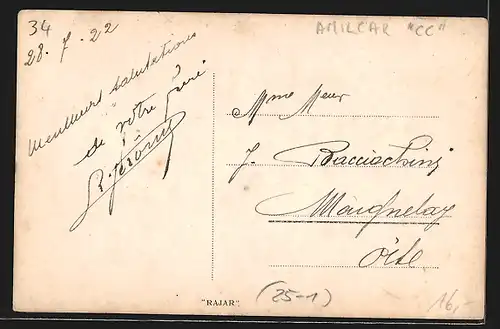 34
28. 7. 22
Meilleurs salutations
de votre
R. Jérôme
AMILCAR "CC"
Mme Meur
J. Bacciochini
Maignelay
Oise
"RAJAR"
(25-1)
16,-